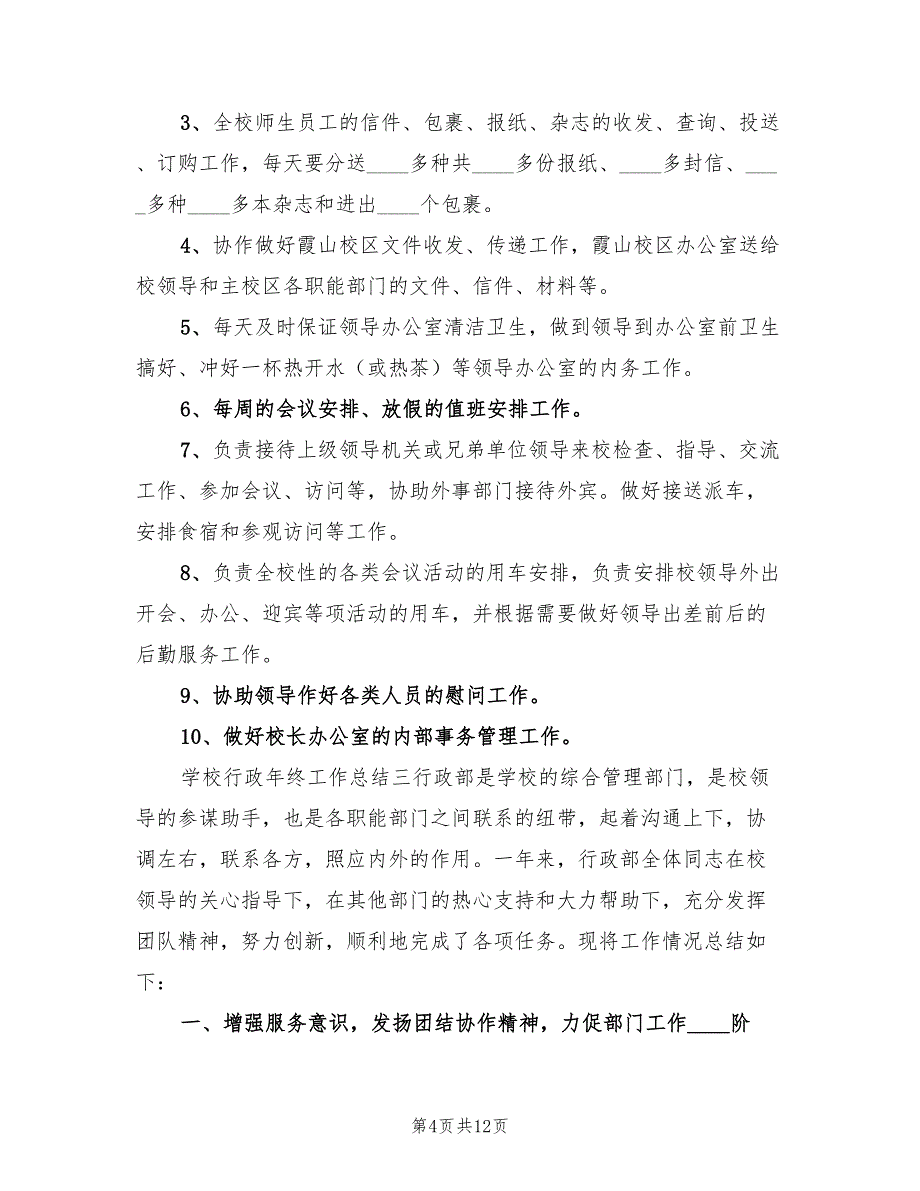 3、全校师生员工的信件、包裹、报纸、杂志的收发、查询、投送
、订购工作，每天要分送____多种共____多份报纸、____多封信、___
_多种____多本杂志和进出____个包裹。
4、协作做好霞山校区文件收发、传递工作，霞山校区办公室送给
校领导和主校区各职能部门的文件、信件、材料等。
5、每天及时保证领导办公室清洁卫生，做到领导到办公室前卫生
搞好、冲好一杯热开水（或热茶）等领导办公室的内务工作。
6、每周的会议安排、放假的值班安排工作。
7、负责接待上级领导机关或兄弟单位领导来校检查、指导、交流
工作、参加会议、访问等，协助外事部门接待外宾。做好接送派车，
安排食宿和参观访问等工作。
8、负责全校性的各类会议活动的用车安排，负责安排校领导外出
开会、办公、迎宾等项活动的用车，并根据需要做好领导出差前后的
后勤服务工作。
9、协助领导作好各类人员的慰问工作。
10、做好校长办公室的内部事务管理工作。
学校行政年终工作总结三行政部是学校的综合管理部门，是校领
导的参谋助手，也是各职能部门之间联系的纽带，起着沟通上下，协
调左右，联系各方，照应内外的作用。一年来，行政部全体同志在校
领导的关心指导下，在其他部门的热心支持和大力帮助下，充分发挥
团队精神，努力创新，顺利地完成了各项任务。现将工作情况总结如
下：
一、增强服务意识，发扬团结协作精神，力促部门工作____阶
第4页共12页